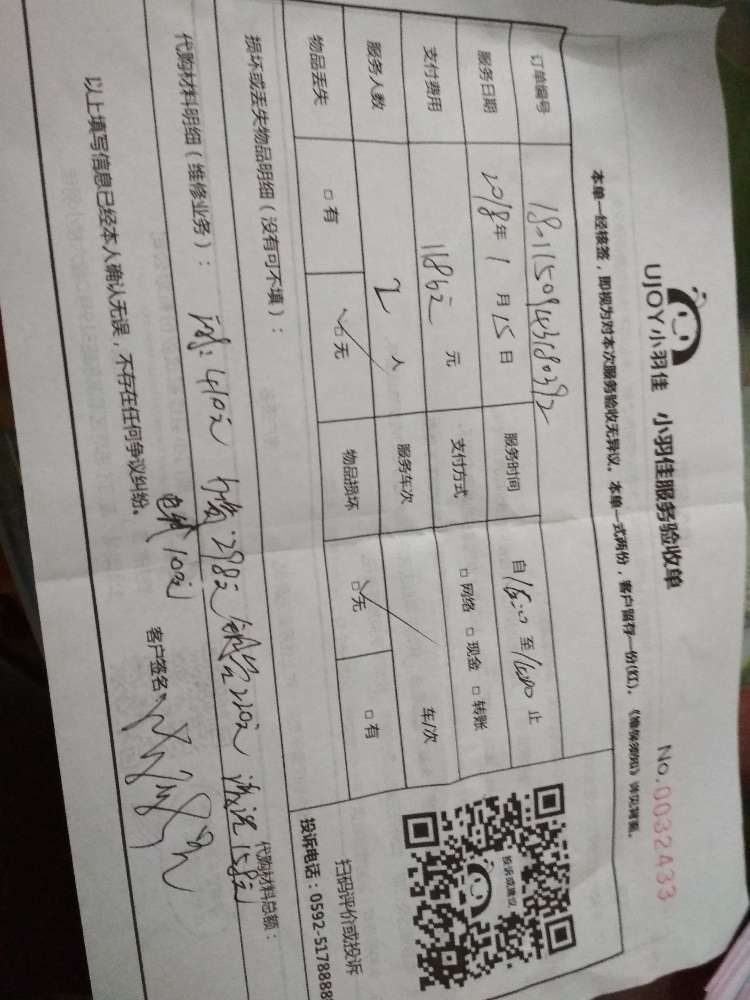 UJOY小羽佳 小羽佳服务验收单
No.0032433
本单一经核签，即视为对本次服务验收无异议。本单一式两份，客户留存一份(红)。
订单编号 18-1150943180392
服务日期 2018年1月15日 服务时间 自 至 止
支付费用 1186元 元 支付方式 □网络 □现金 □转账
服务人数 2 人 服务车次 车/次
物品丢失 □有 □无 物品损坏 □无 □有
损坏或丢失物品明细（没有可不填）：
代购材料明细（维修业务）： 410元 298元 210元 清洗158元
代购材料总额：
10元
以上填写信息已经本人确认无误，不存在任何争议纠纷。
客户签名：
投诉或建议
扫码评价或投诉
投诉电话：0592-5178888